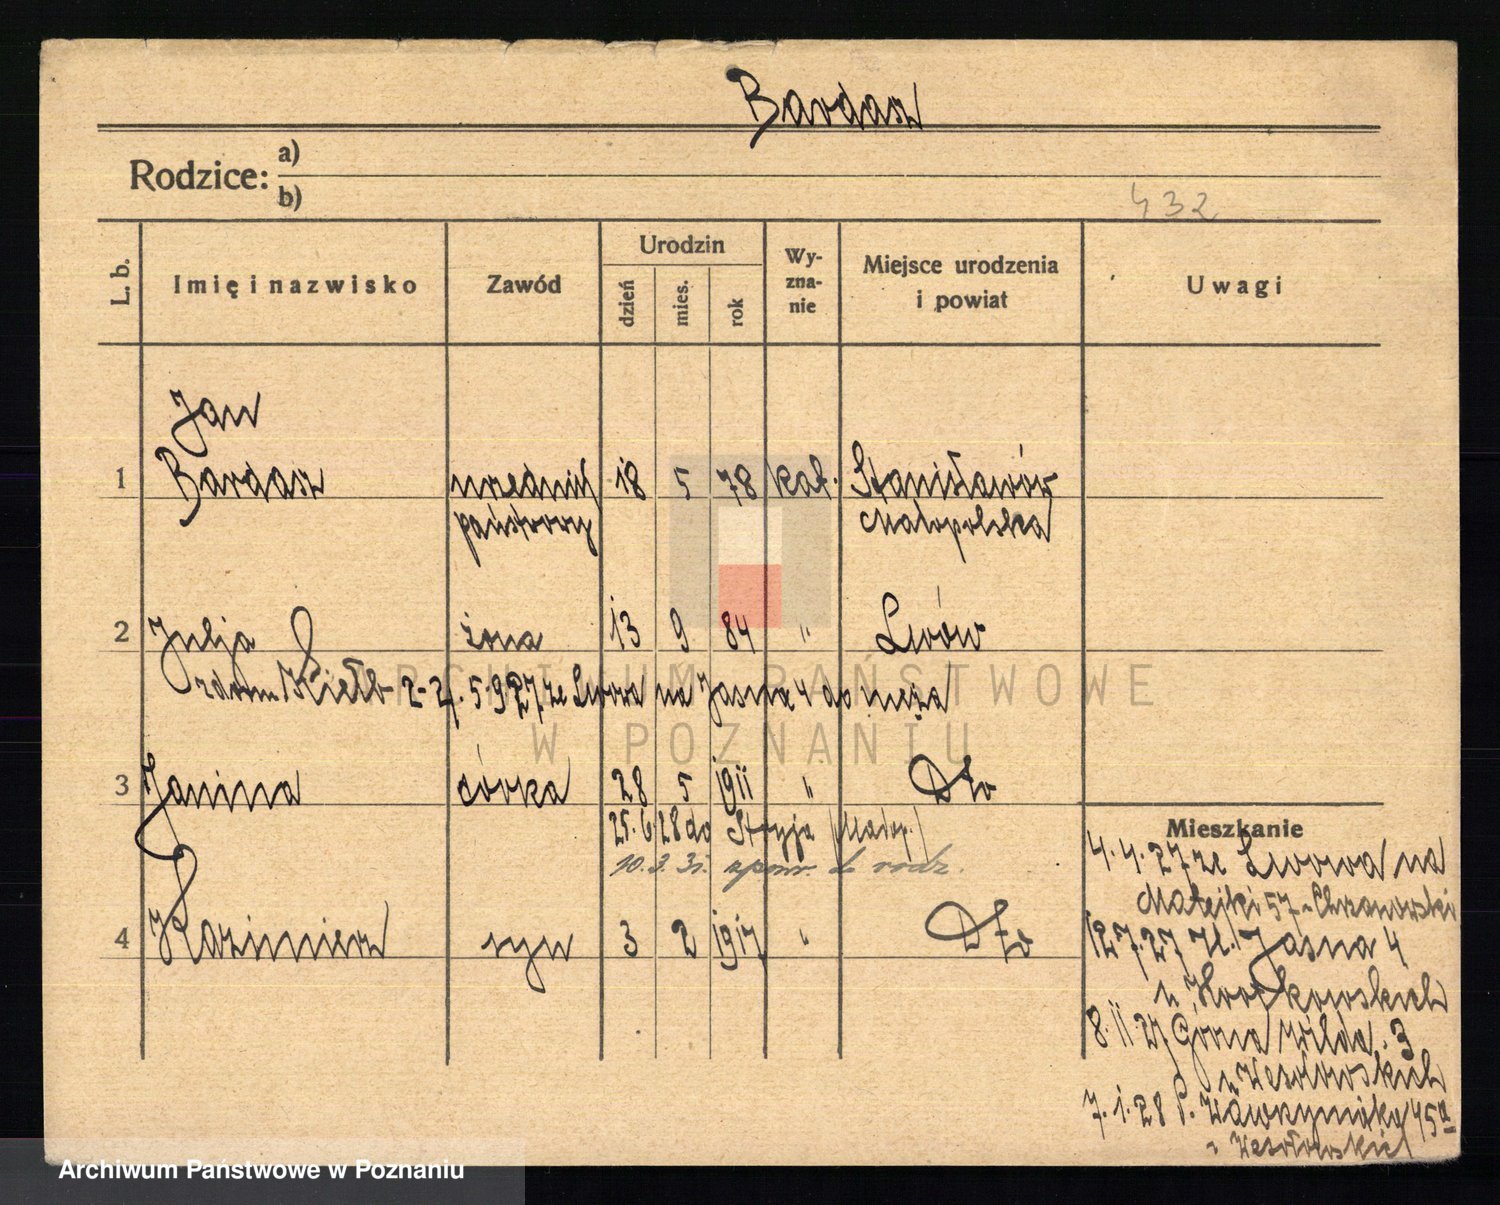 Bardasz
Rodzice: a)
b)
432
L. b.
Imię i nazwisko
Zawód
Urodzin
dzień
mies.
rok
Wy-
zna-
nie
Miejsce urodzenia
i powiat
Uwagi
Jan
1 Bardasz urzednik 18 5 78 kat. Stanisławów
państwowy Małopolska
2 Julja żona 13 9 84 " Lwów
zdom. Kiełb 5.9.27 ze Lwowa na Jasna 4 do męża
3 Janina córka 28 5 1911 " Dto
25.6.28 do Stryja /Małop./
10.3.31. z powr. do rodz.
4 Kazimierz syn 3 2 1917 " Dto
Mieszkanie
4.4.27 ze Lwowa na
Matejki 57 Chrzanowski
12.7.27 Jasna 4
8.11.27 Górna Wilda. 3
u Wesołowskich
7.1.28 P. Wawrzyniaka 45a
u Wesołowskich
ARCHIWUM PAŃSTWOWE
W POZNANIU
Archiwum Państwowe w Poznaniu